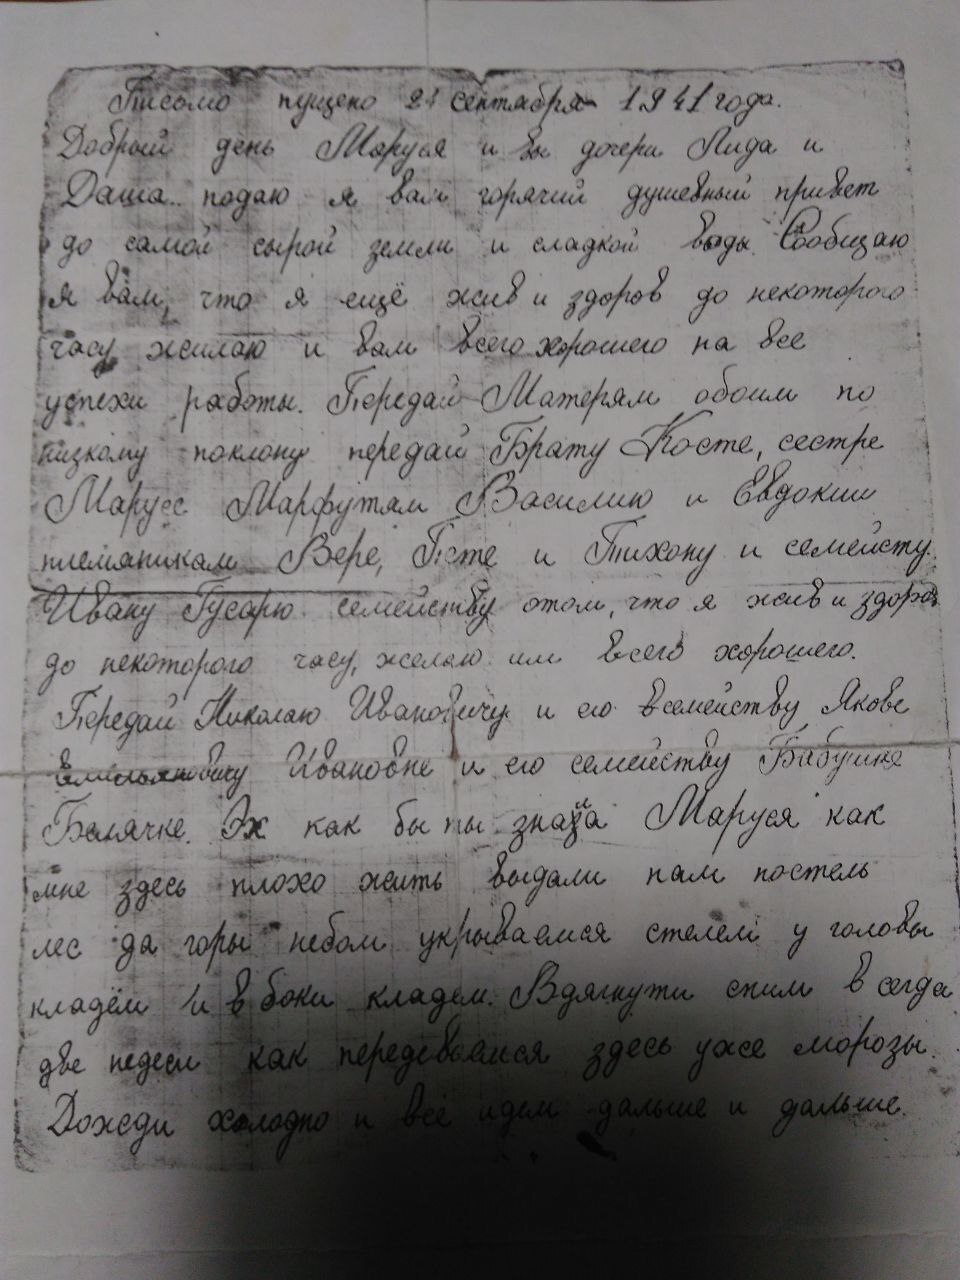 Письмо пущено 21 сентября 1941 года.
Добрый день Маруся и вы дочери Лида и
Даша.. подаю я вам горячий душевный привет
до самой сырой земли и сладкой выды. Сообщаю
я вам, что я ещё жив и здоров до некоторого
часу жилаю и вам всего хорошего на все
успехи работы. Передай Матерям обоим по
низкому поклону передай Брату Косте, сестре
Марусе Марфутам Василию и Евдокии
племяникам Вере, Пете и Тихону и семейсту.
Ивану Гусарю семейству отом, что я жив и здоров
до некоторого часу, желаю им всего хорошего.
Передай Николаю Ивановичу и его всемейству Якове
Ивановне и его семейству Бабушке
Белячке. Эх как бы ты знала Маруся как
мне здесь плохо жить выдали нам постель
лес да горы небом укрываемся стелем у головы
кладём и в боки кладем. Вдягнути спим всегда
две недели как передеваемся здесь уже морозы.
Дожди холодно и всё идем дальше и дальше.